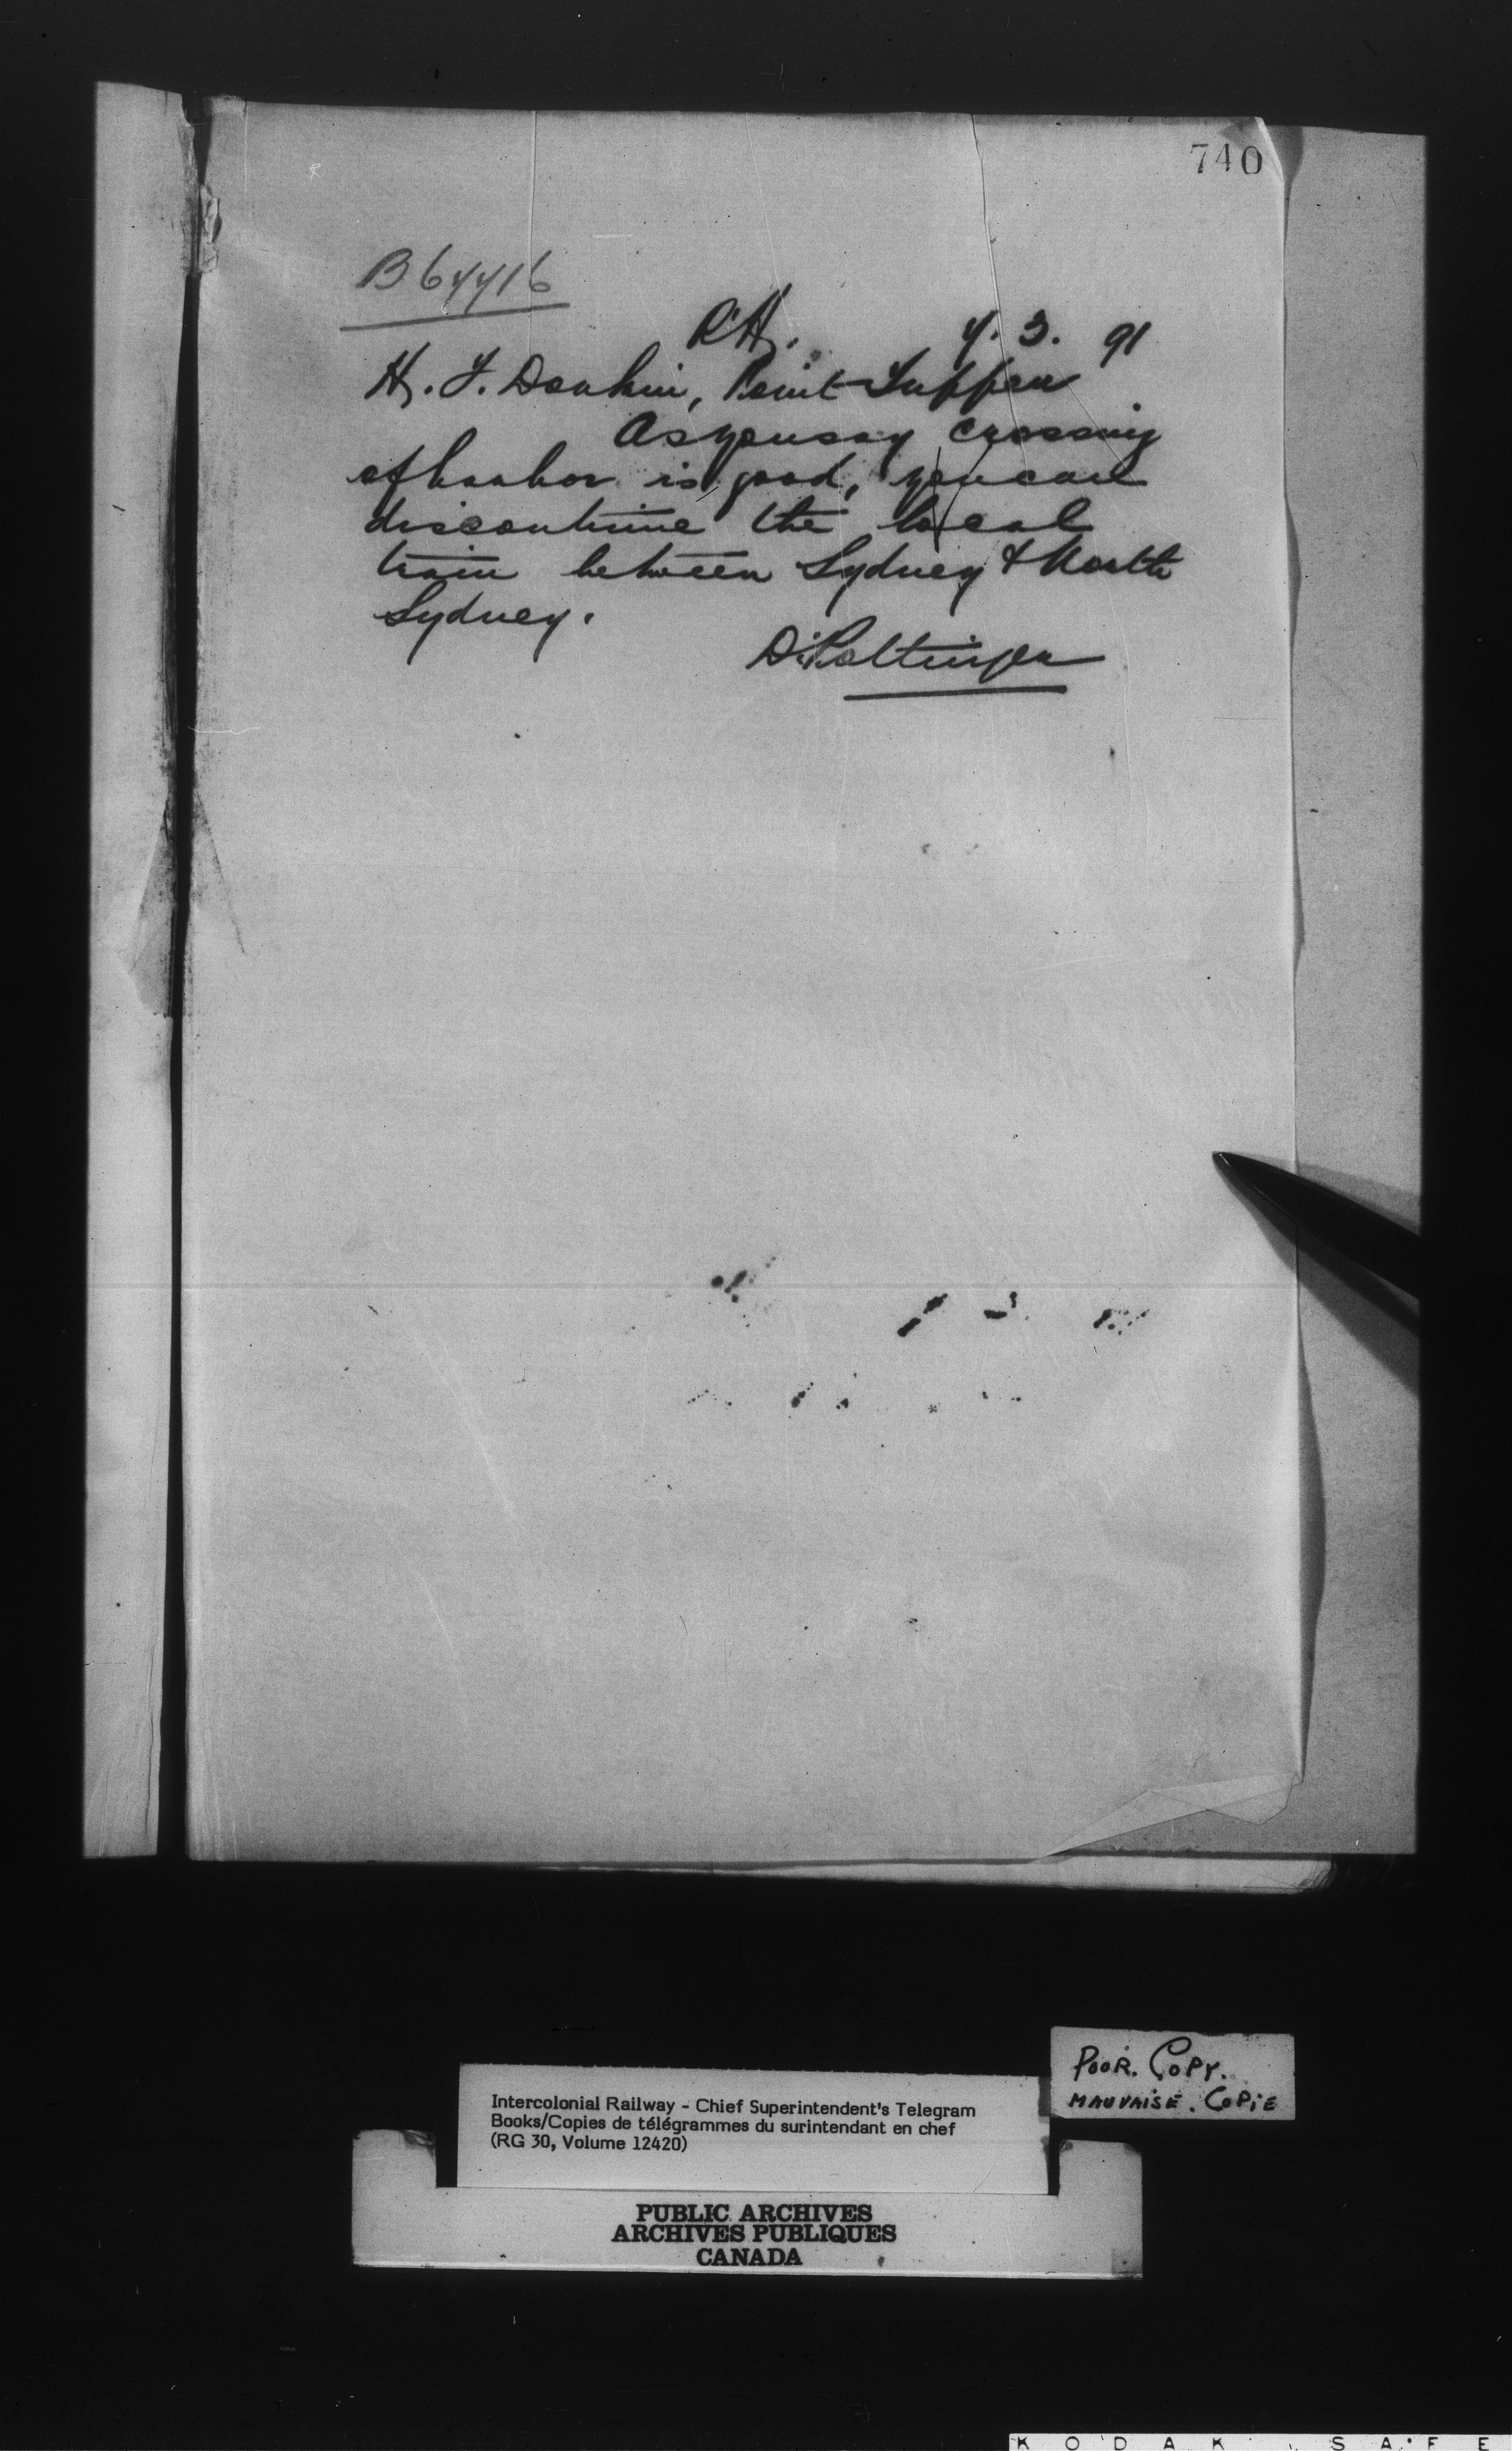 740
B64416
RH. 4. 3. 91
H. F. Donkin, Point Tupper
As you say crossing
of harbor is good, you can
discontinue the local
train between Sydney & North
Sydney.
D. Pottinger
POOR. COPY.
MAUVAISE. COPIE
Intercolonial Railway - Chief Superintendent's Telegram
Books/Copies de télégrammes du surintendant en chef
(RG 30, Volume 12420)
PUBLIC ARCHIVES
ARCHIVES PUBLIQUES
CANADA
KODAK SAFE